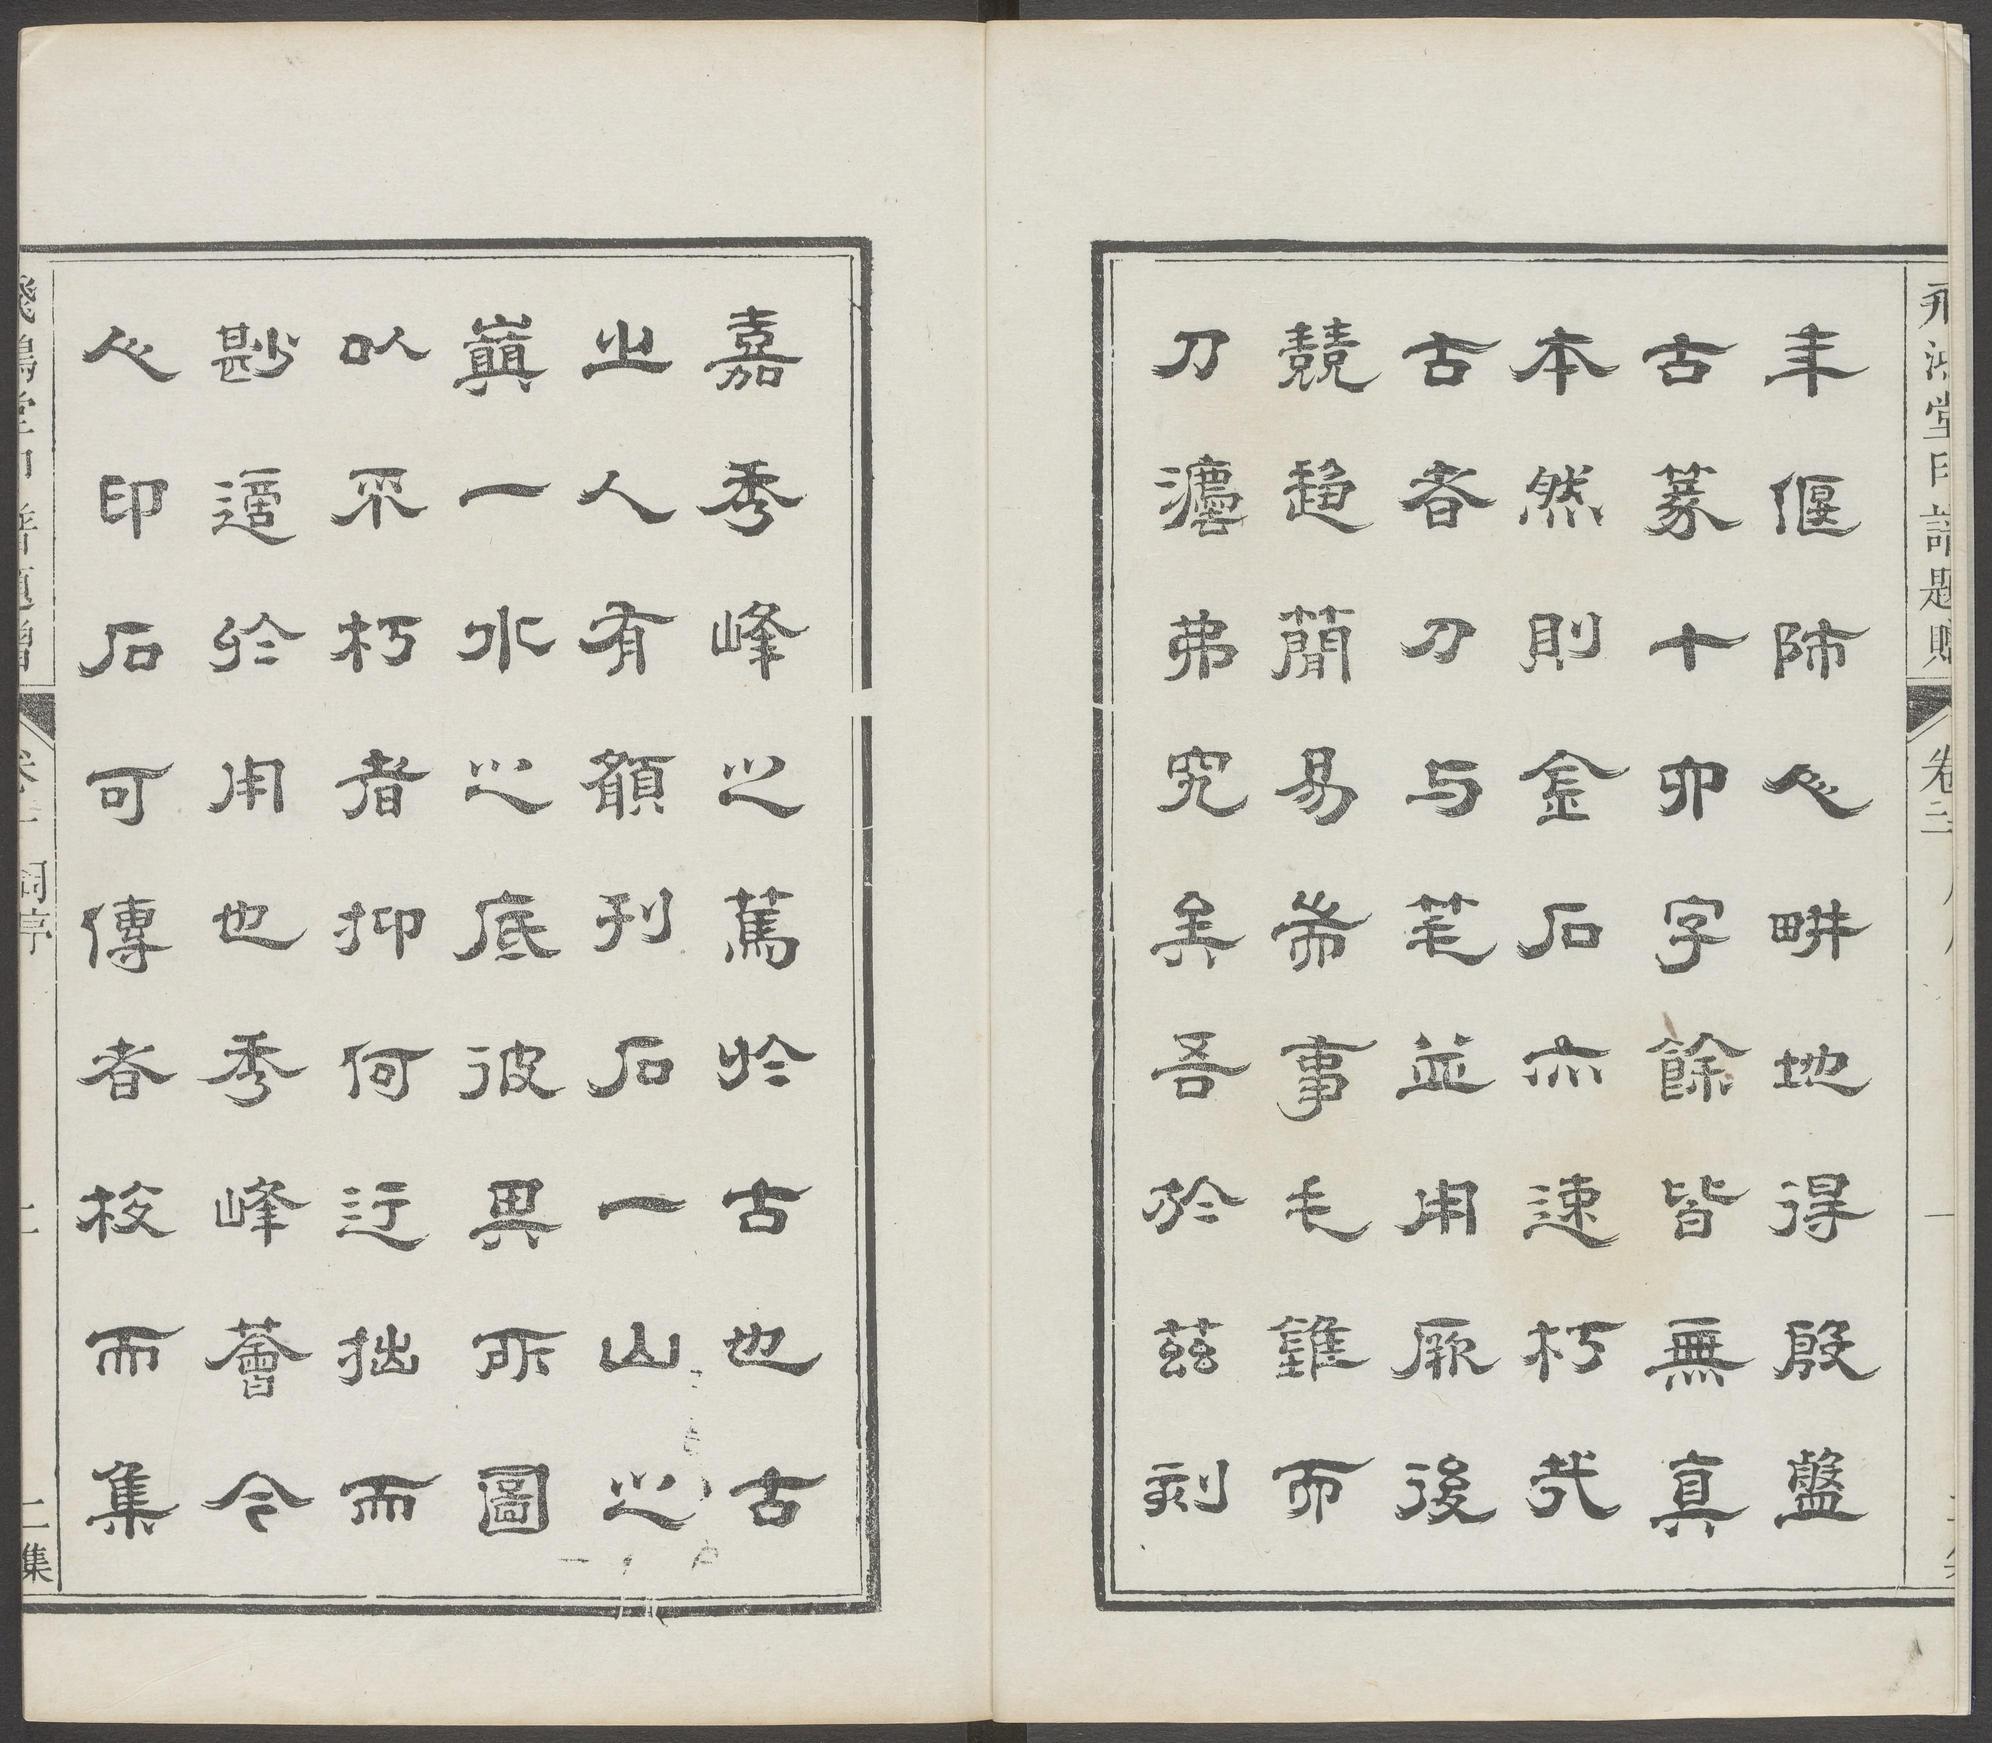 飛鴻堂印譜題贈 卷三
年偃師人畊地得殷盤
古篆十卯字餘皆無真
本然則金石亦速朽哉
古者刀与筆並用厥後
競趋簡易希事毛錐而
刀灋弗究矣吾於茲刻
嘉秀峰之篤於古也古
之人有願刊石一山之
巔一水之底彼異所圖
以不朽者抑何迂拙而
尠適於用也秀峰薈今
人印石可傳者校而集
二集